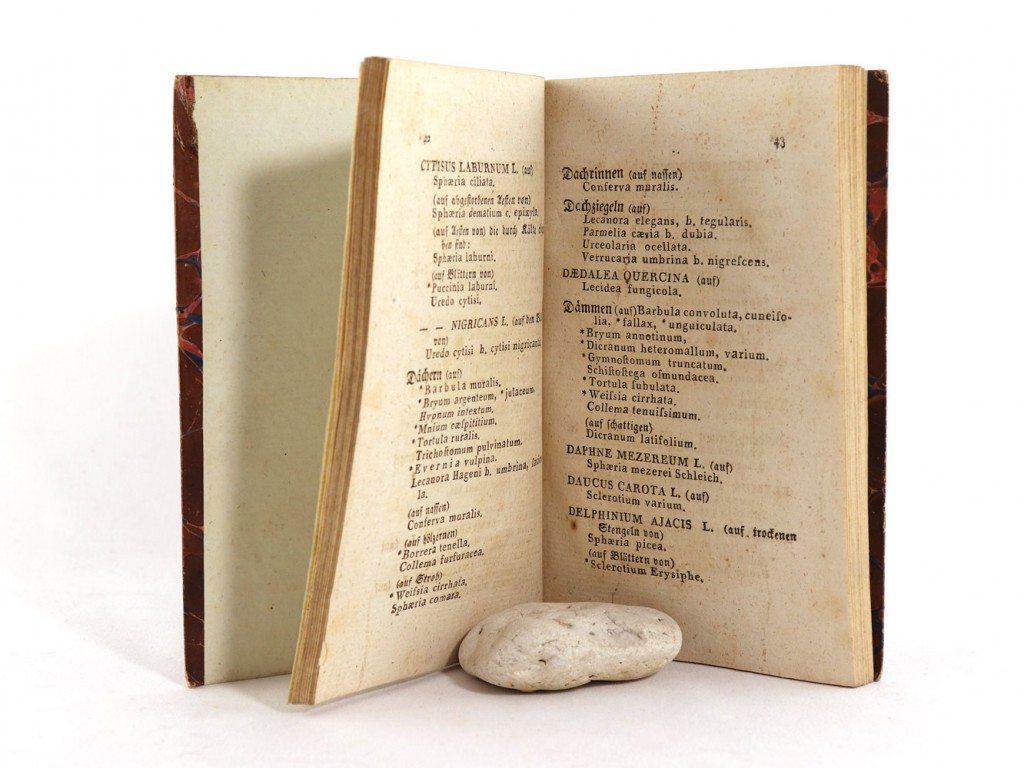 42
CITISUS LABURNUM L. (auf)
Sphæria ciliata.
(auf abgeſtorbenen Aeſten von)
Sphæria dematium c. epixyla.
(auf Aeſten von) die durch Kälte
ben ſind:
Sphæria laburni.
(auf Blättern von)
*Puccinia laburni.
Uredo cytisi.
— — NIGRICANS L. (auf den
von)
Uredo cytisi b. cytisi nigricantis
Dächern (auf)
*Barbula muralis.
*Bryum argenteum, *julaceum.
Hypnum intextum.
*Mnium cæſpititium.
*Tortula ruralis.
Trichoſtomum pulvinatum.
*Evernia vulpina.
Lecanora Hageni b. umbrina,
la.
(auf naſſen)
Conferva muralis.
(auf hölzernen)
*Borrera tenella.
Collema furfuracea.
(auf Stroh)
*Weiſsia cirrhata.
Sphæria comata.
43
Dachrinnen (auf naſſen)
Conferva muralis.
Dachziegeln (auf)
Lecanora elegans, b. tegularis.
Parmelia cæsia b. dubia.
Urceolaria ocellata.
Verrucaria umbrina b. nigreſcens.
DÆDALEA QUERCINA (auf)
Lecidea fungicola.
Dämmen (auf) Barbula convoluta, cuneifo-
lia, *fallax, *unguiculata.
*Bryum annotinum,
*Dicranum heteromallum, varium.
*Gymnoſtomum truncatum.
Schiſtoſtega oſmundacea.
*Tortula ſubulata.
*Weiſsia cirrhata.
Collema tenuiſſimum.
(auf ſchattigen)
Dicranum latifolium.
DAPHNE MEZEREUM L. (auf)
Sphæria mezerei Schleich.
DAUCUS CAROTA L. (auf)
Sclerotium varium.
DELPHINIUM AJACIS L. (auf trockenen
Stengeln von)
Sphæria picea.
(auf Blättern von)
*Sclerotium Erysiphe.